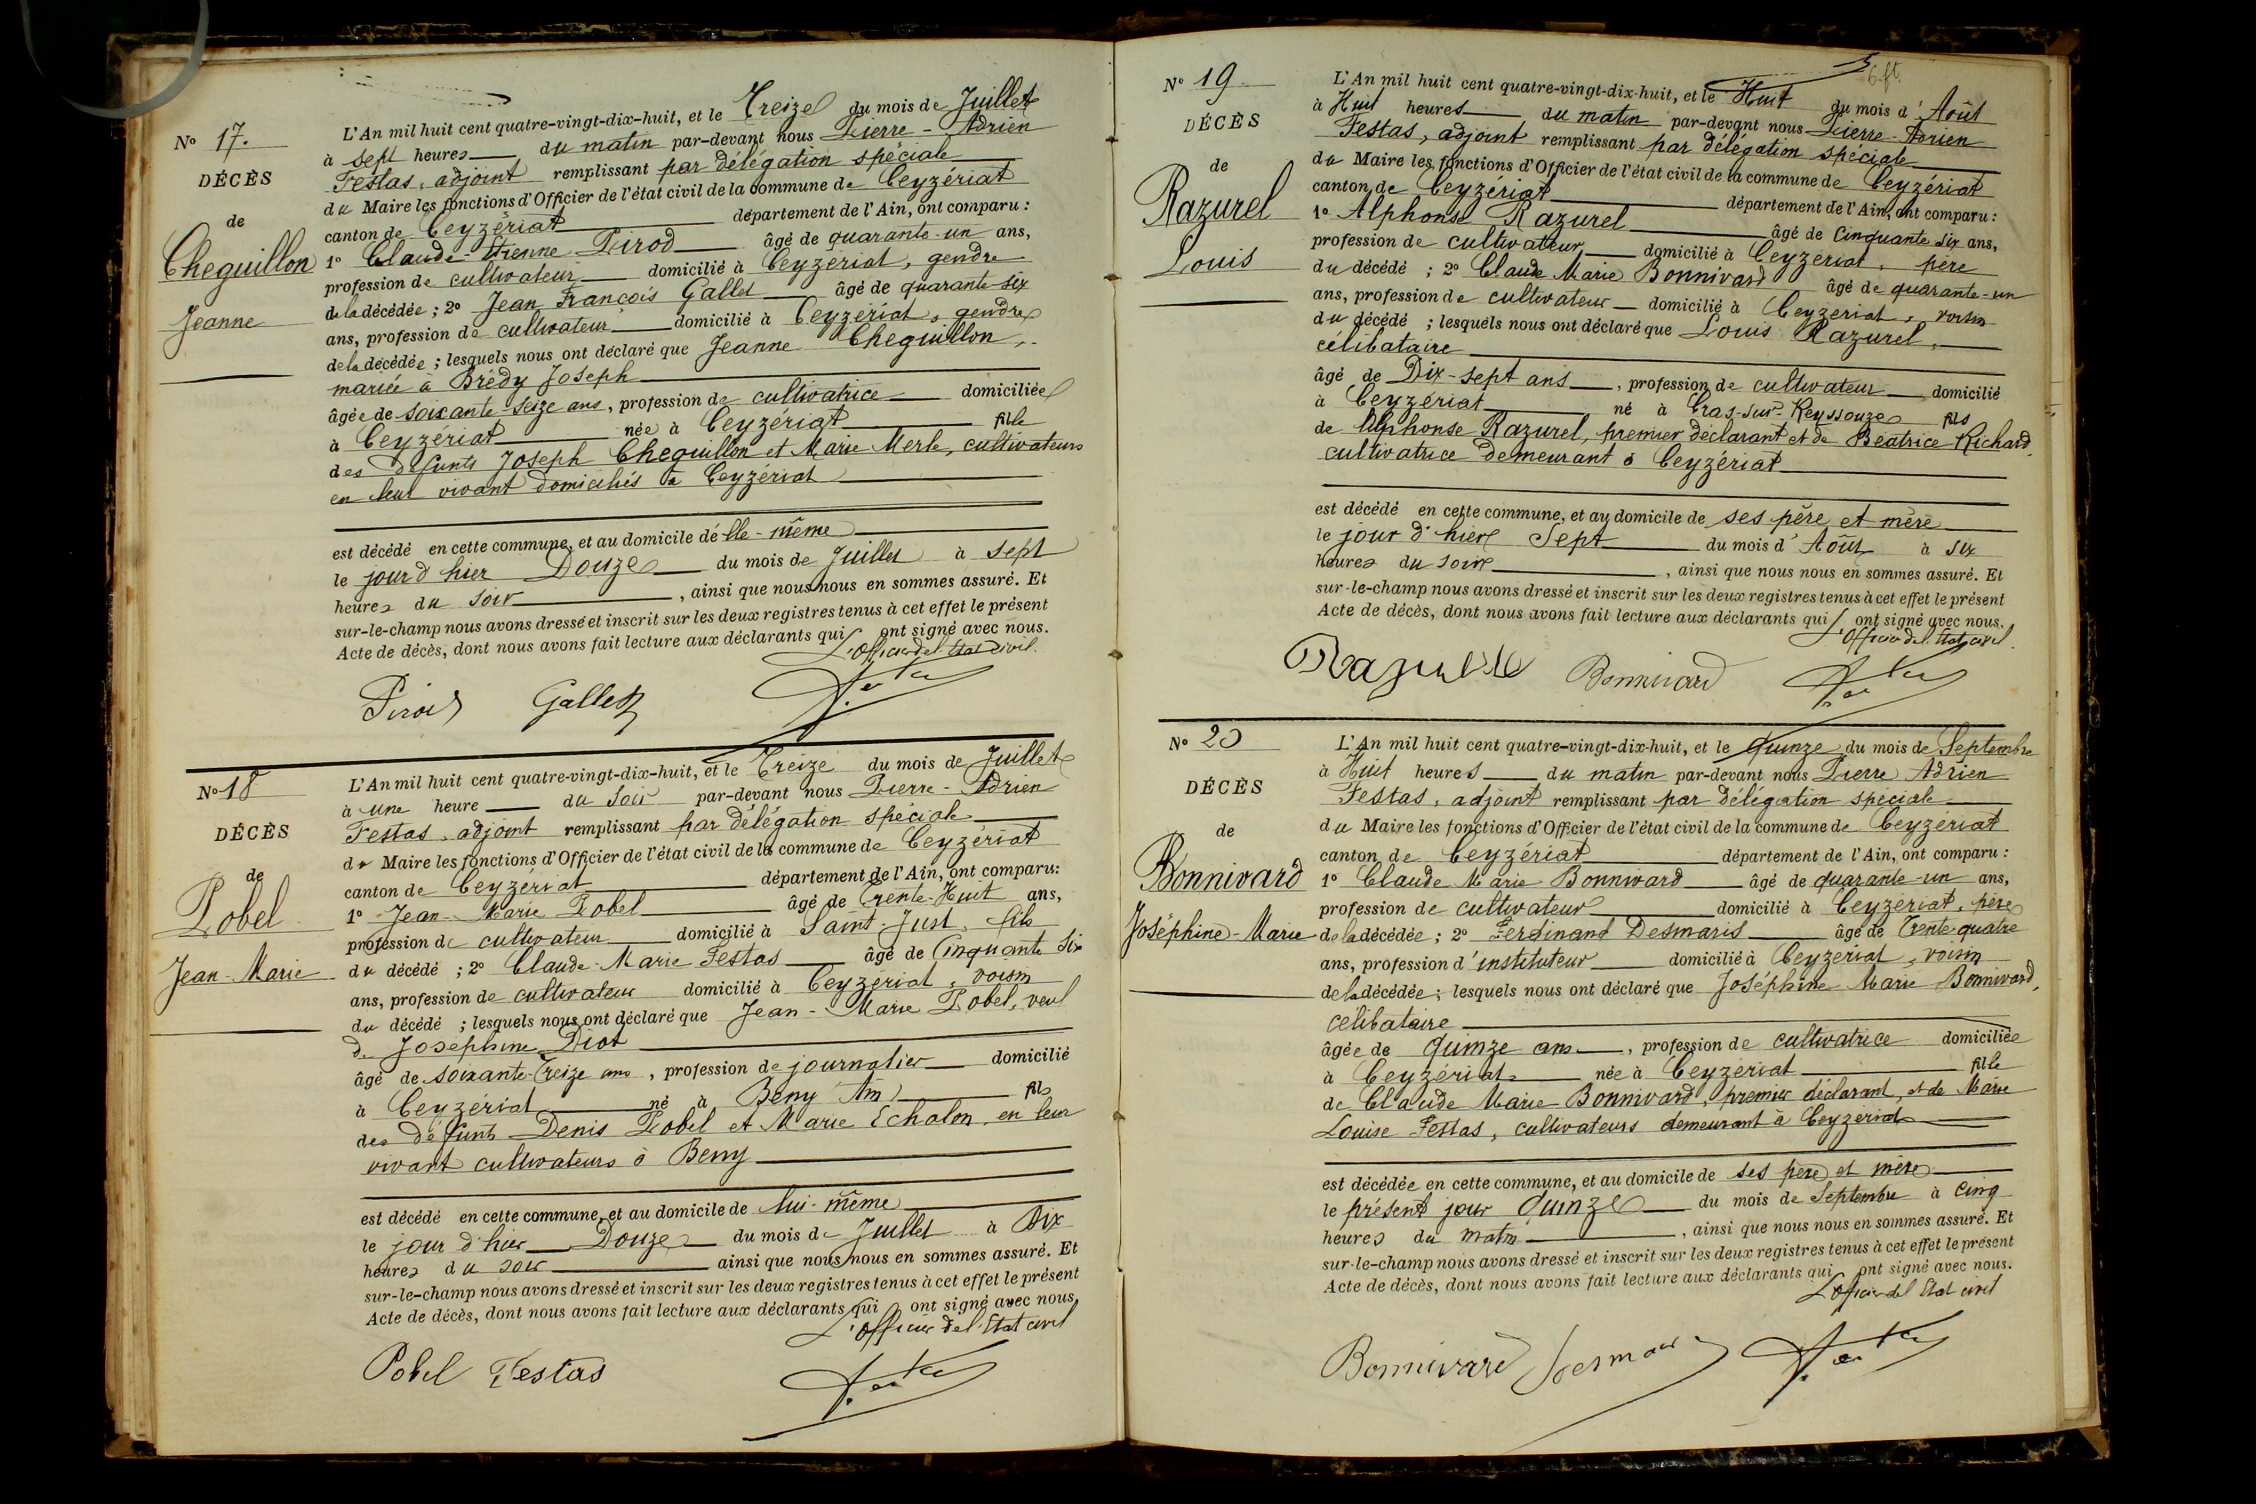 N° 17.
DÉCÈS
de
Cheguillon
Jeanne
L'An mil huit cent quatre-vingt-dix-huit, et le Treize du mois de Juillet
à sept heures du matin par-devant nous Pierre-Adrien
Festas, adjoint remplissant par délégation spéciale
du Maire les fonctions d'Officier de l'état civil de la commune de Ceyzériat
canton de Ceyzériat département de l'Ain, ont comparu :
1° Claude-Etienne Pirod âgé de quarante-un ans,
profession de cultivateur domicilié à Ceyzériat, gendre
de la décédée ; 2° Jean François Gallet âgé de quarante six
ans, profession de cultivateur domicilié à Ceyzériat, gendre
de la décédée ; lesquels nous ont déclaré que Jeanne Cheguillon,
mariée à Brédy Joseph
âgée de soixante-seize ans, profession de cultivatrice domiciliée
à Ceyzériat née à Ceyzériat fille
des défunts Joseph Cheguillon et Marie Merle, cultivateurs
en leur vivant domiciliés à Ceyzériat
est décédé en cette commune, et au domicile d'elle-même
le jour d'hier Douze du mois de Juillet à sept
heures du soir , ainsi que nous nous en sommes assuré. Et
sur-le-champ nous avons dressé et inscrit sur les deux registres tenus à cet effet le présent
Acte de décès, dont nous avons fait lecture aux déclarants qui ont signé avec nous.
L'Officier de l'Etat civil.
Pirod Gallet
N° 18
DÉCÈS
de
Pobel
Jean-Marie
L'An mil huit cent quatre-vingt-dix-huit, et le Treize du mois de Juillet
à une heure du soir par-devant nous Pierre-Adrien
Festas, adjoint remplissant par délégation spéciale
du Maire les fonctions d'Officier de l'état civil de la commune de Ceyzériat
canton de Ceyzériat département de l'Ain, ont comparu:
1° Jean-Marie Pobel âgé de Trente-Huit ans,
profession de cultivateur domicilié à Saint-Just, fils
du décédé ; 2° Claude-Marie Festas âgé de Cinquante six
ans, profession de cultivateur domicilié à Ceyzériat, voisin
du décédé ; lesquels nous ont déclaré que Jean-Marie Pobel, veuf
de Joséphine Diot
âgé de soixante-Treize ans, profession de journalier domicilié
à Ceyzériat né à Beny Ain fils
des défunts Denis Pobel et Marie Echalon, en leur
vivant cultivateurs à Beny
est décédé en cette commune, et au domicile de lui-même
le jour d'hier Douze du mois de Juillet à Dix
heures du soir ainsi que nous nous en sommes assuré. Et
sur-le-champ nous avons dressé et inscrit sur les deux registres tenus à cet effet le présent
Acte de décès, dont nous avons fait lecture aux déclarants qui ont signé avec nous.
L'Officier de l'Etat civil
Pobel Festas
N° 19
DÉCÈS
de
Razurel
Louis
L'An mil huit cent quatre-vingt-dix-huit, et le Huit du mois d'Août
à Huit heures du matin par-devant nous Pierre-Adrien
Festas, adjoint remplissant par délégation spéciale
du Maire les fonctions d'Officier de l'état civil de la commune de Ceyzériat
canton de Ceyzériat département de l'Ain, ont comparu :
1° Alphonse Razurel âgé de Cinquante six ans,
profession de cultivateur domicilié à Ceyzériat, père
du décédé ; 2° Claude Marie Bonnivard âgé de quarante-un
ans, profession de cultivateur domicilié à Ceyzériat, voisin
du décédé ; lesquels nous ont déclaré que Louis Razurel,
célibataire
âgé de Dix-sept ans, profession de cultivateur domicilié
à Ceyzériat né à Cras-sur-Reyssouze fils
de Alphonse Razurel, premier déclarant et de Béatrice Richard,
cultivatrice demeurant à Ceyzériat
est décédé en cette commune, et au domicile de ses père et mère
le jour d'hier Sept du mois d'Août à six
heures du soir , ainsi que nous nous en sommes assuré. Et
sur-le-champ nous avons dressé et inscrit sur les deux registres tenus à cet effet le présent
Acte de décès, dont nous avons fait lecture aux déclarants qui ont signé avec nous.
L'Officier de l'Etat civil.
Bonnivard
N° 20
DÉCÈS
de
Bonnivard
Joséphine-Marie
L'An mil huit cent quatre-vingt-dix-huit, et le quinze du mois de Septembre
à Huit heures du matin par-devant nous Pierre Adrien
Festas, adjoint remplissant par délégation spéciale
du Maire les fonctions d'Officier de l'état civil de la commune de Ceyzériat
canton de Ceyzériat département de l'Ain, ont comparu :
1° Claude Marie Bonnivard âgé de quarante-un ans,
profession de cultivateur domicilié à Ceyzériat, père
de la décédée ; 2° Ferdinand Desmaris âgé de Trente-quatre
ans, profession d'instituteur domicilié à Ceyzériat, voisin
de la décédée ; lesquels nous ont déclaré que Joséphine Marie Bonnivard,
célibataire
âgée de quinze ans, profession de cultivatrice domiciliée
à Ceyzériat née à Ceyzériat fille
de Claude Marie Bonnivard, premier déclarant, et de Marie
Louise Festas, cultivateurs demeurant à Ceyzériat
est décédée en cette commune, et au domicile de ses père et mère
le présent jour quinze du mois de Septembre à cinq
heures du matin , ainsi que nous nous en sommes assuré. Et
sur-le-champ nous avons dressé et inscrit sur les deux registres tenus à cet effet le présent
Acte de décès, dont nous avons fait lecture aux déclarants qui ont signé avec nous.
L'Officier de l'Etat civil
Bonnivard